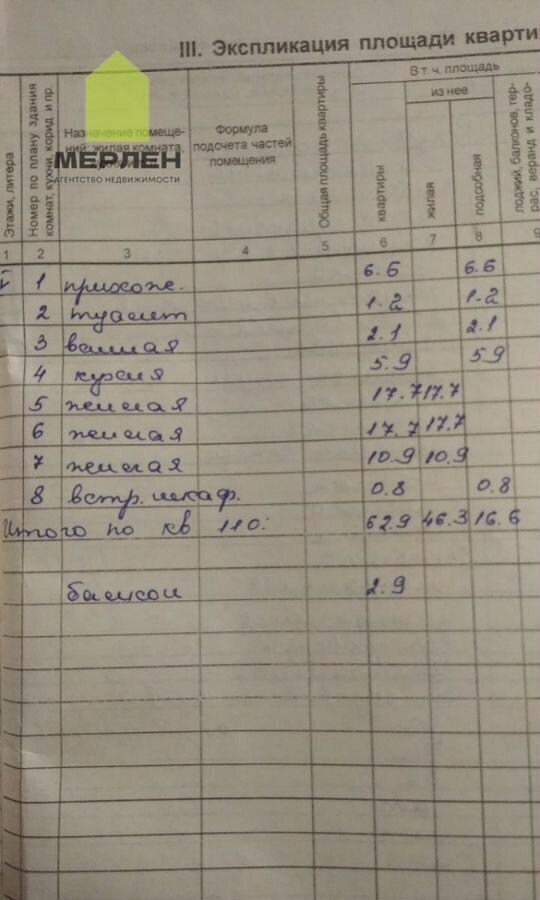 III. Экспликация площади кварти
Этажи, литера
Номер по плану здания комнат, кухни, корид. и пр.
Назначение помеще-
ний: жилая комната,
МЕРЛЕН
АГЕНТСТВО НЕДВИЖИМОСТИ
Формула
подсчета частей
помещения
Общая площадь квартиры
В т. ч. площадь
квартиры
из нее
жилая
подсобная
лоджий, балконов, тер-
рас, веранд и кладо-
1 2 3 4 5 6 7 8 9
1 прихож. 6.6 6.6
2 туалет 1.2 1.2
3 ванная 2.1 2.1
4 кухня 5.9 5.9
5 жилая 17.7 17.7
6 жилая 17.7 17.7
7 жилая 10.9 10.9
8 встр. шкаф. 0.8 0.8
Итого по кв 110: 62.9 46.3 16.6
балкон 2.9